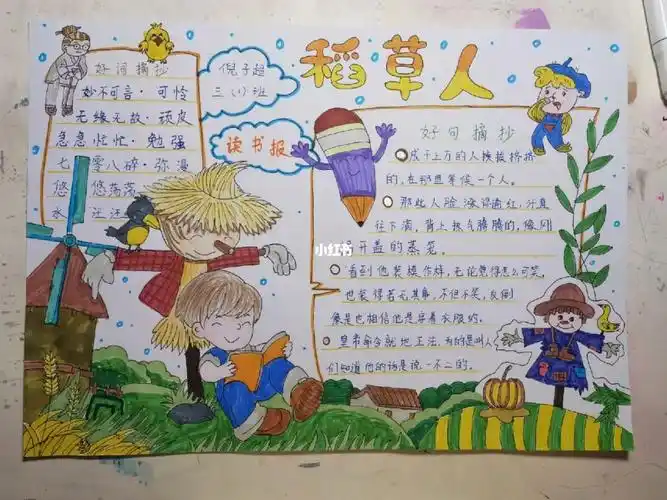 稻草人
倪子超
三（1）班
读书报
好词摘抄
妙不可言·可怜
无缘无故·顽皮
急急忙忙·勉强
七零八碎·弥漫
悠悠荡荡
水汪汪
好句摘抄
成千上万的人挨挨挤挤
的，在那里等候一个人。
那些人脸涨得通红，汗直
往下滴，背上热气腾腾的，像刚
开盖的蒸笼。
看到他装模作样，无论觉得怎么可笑，
也装得若无其事，不但不笑，反倒
像是也相信他是穿着衣服的。
皇帝命令就地正法，为的是叫人
们知道他的话是说一不二的。
小红书